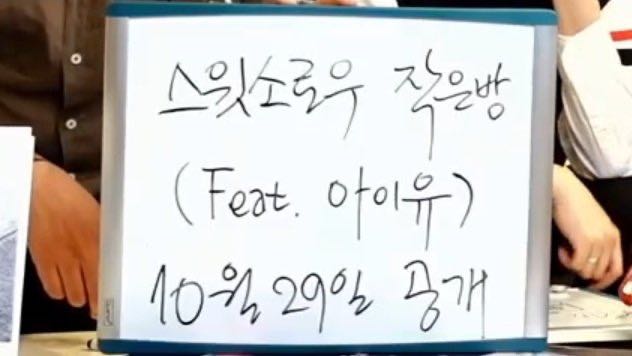 스윗소로우 작은방
(Feat. 아이유)
10월 29일 공개